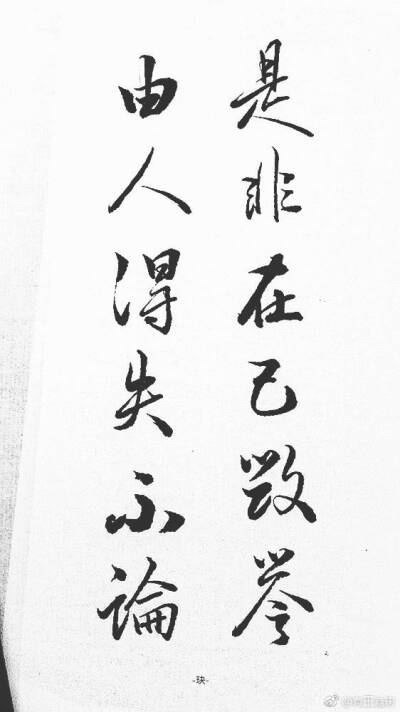 是非在己毀誉
由人得失不論
-玦-